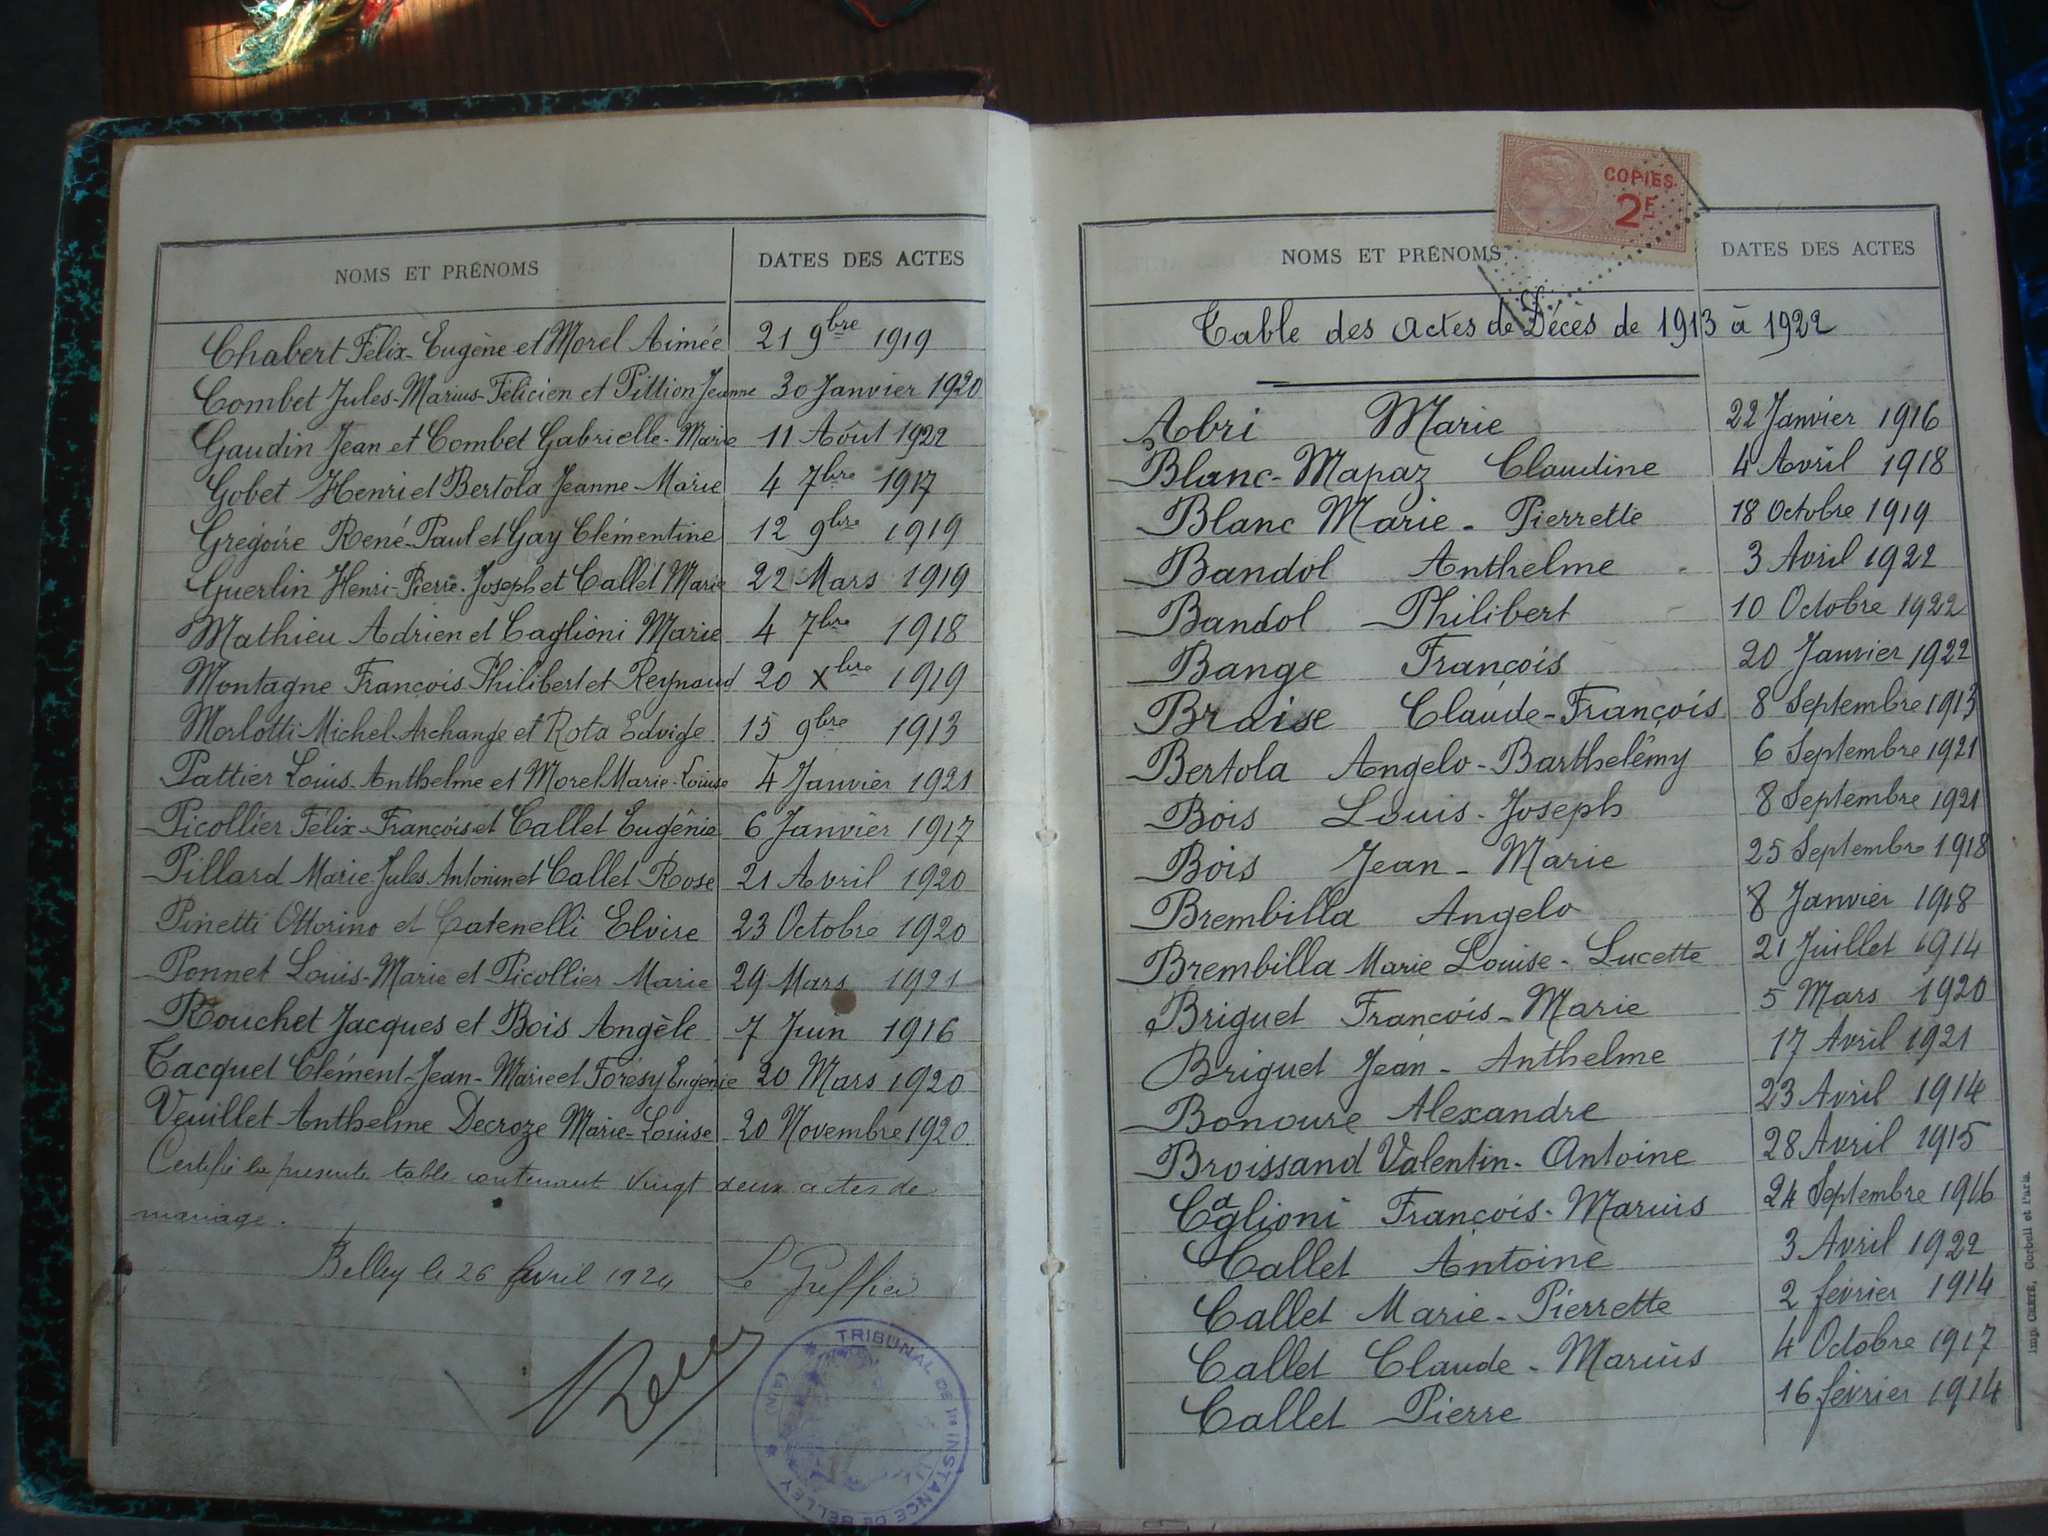 NOMS ET PRÉNOMS
DATES DES ACTES
Chabert Félix-Eugène et Morel Aimée 21 9bre 1919
Combet Jules-Marius-Félicien et Pittion Jeanne 30 Janvier 1920
Gaudin Jean et Combet Gabrielle-Marie 11 Août 1922
Gobet Henri et Bertola Jeanne-Marie 4 7bre 1917
Grégoire René-Paul et Gay Clémentine 12 9bre 1919
Guerlin Henri-Pierre-Joseph et Callet Marie 22 Mars 1919
Mathieu Adrien et Caglioni Marie 4 7bre 1918
Montagne François Philibert et Reynaud 20 Xbre 1919
Morlotti Michel-Archange et Rota Edvige 15 9bre 1913
Pattier Louis-Anthelme et Morel Marie-Louise 4 Janvier 1921
Picollier Félix-François et Callet Eugénie 6 Janvier 1917
Pillard Marie Jules Antonin et Callet Rose 21 Avril 1920
Pinetti Ottorino et Catenelli Elvire 23 Octobre 1920
Ponnet Louis-Marie et Picollier Marie 29 Mars 1921
Rouchet Jacques et Bois Angèle 7 Juin 1916
Tacquet Clément-Jean-Marie et Forésy Eugénie 20 Mars 1920
Veuillet Anthelme Decroze Marie-Louise 20 Novembre 1920
Certifié la présente table contenant vingt deux actes de
mariage.
Belley le 26 avril 1924 Le Greffier
TRIBUNAL DE 1re INSTANCE DE BELLEY (AIN)
COPIES
2F
NOMS ET PRÉNOMS
DATES DES ACTES
Table des actes de Décès de 1913 à 1922
Abri Marie 22 Janvier 1916
Blanc-Mapaz Claudine 4 Avril 1918
Blanc Marie-Pierrette 18 Octobre 1919
Bandol Anthelme 3 Avril 1922
Bandol Philibert 10 Octobre 1922
Bange François 20 Janvier 1922
Braise Claude-François 8 Septembre 1913
Bertola Angelo-Barthelémy 6 Septembre 1921
Bois Louis-Joseph 8 Septembre 1921
Bois Jean-Marie 25 Septembre 1918
Brembilla Angelo 8 Janvier 1918
Brembilla Marie Louise-Lucette 21 Juillet 1914
Briguet François-Marie 5 Mars 1920
Briguet Jean-Anthelme 17 Avril 1921
Bonoure Alexandre 23 Avril 1914
Broissand Valentin-Antoine 28 Avril 1915
Caglioni François-Marius 24 Septembre 1916
Callet Antoine 3 Avril 1922
Callet Marie-Pierrette 2 février 1914
Callet Claude-Marius 4 Octobre 1917
Callet Pierre 16 février 1914
Imp. CRÉTÉ, Corbeil et Paris.